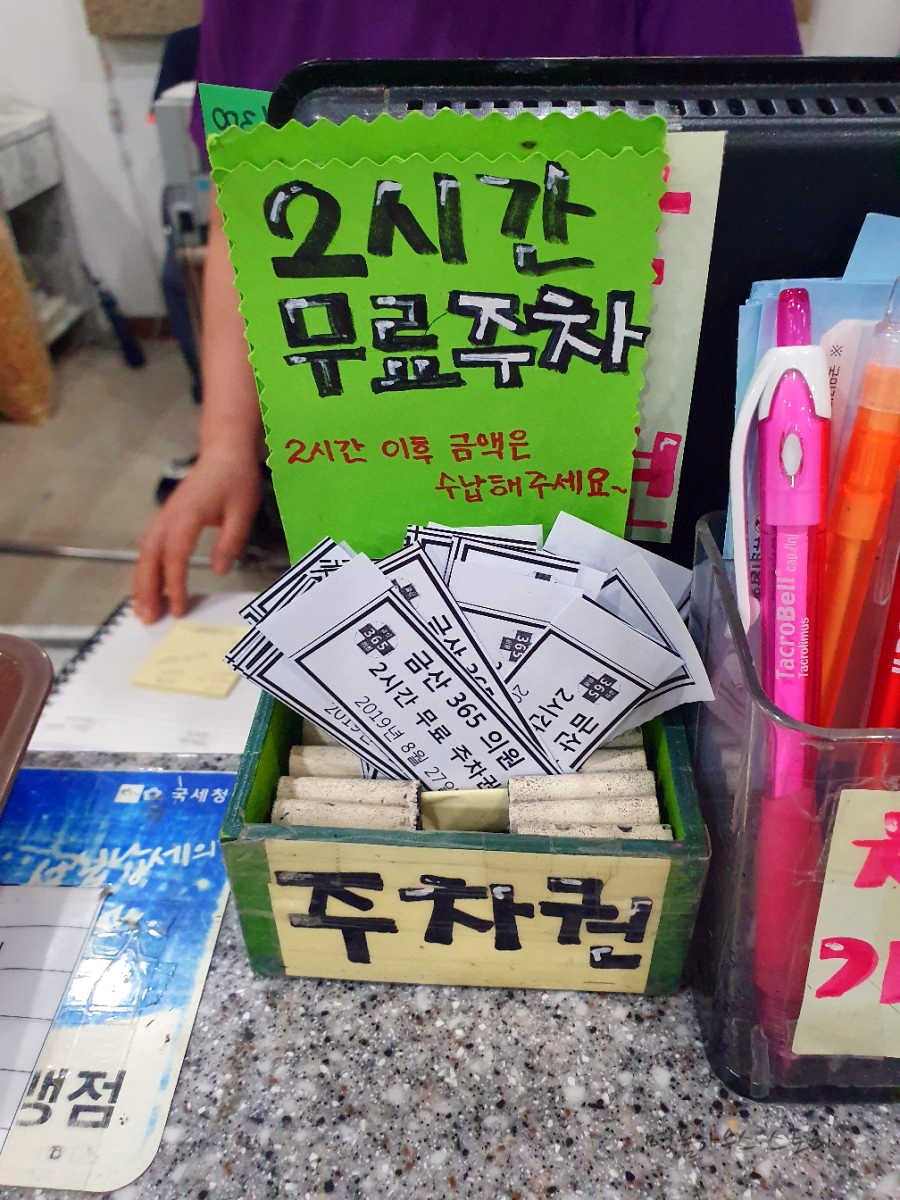 2시간
무료주차
2시간 이후 금액은
수납해주세요~
365
금산 365 의원
2시간 무료 주차권
2019년 8월 27일
365
금산
2시간
주차권
국세청
맹점
TacroBell cap./inj
Tacrolimus